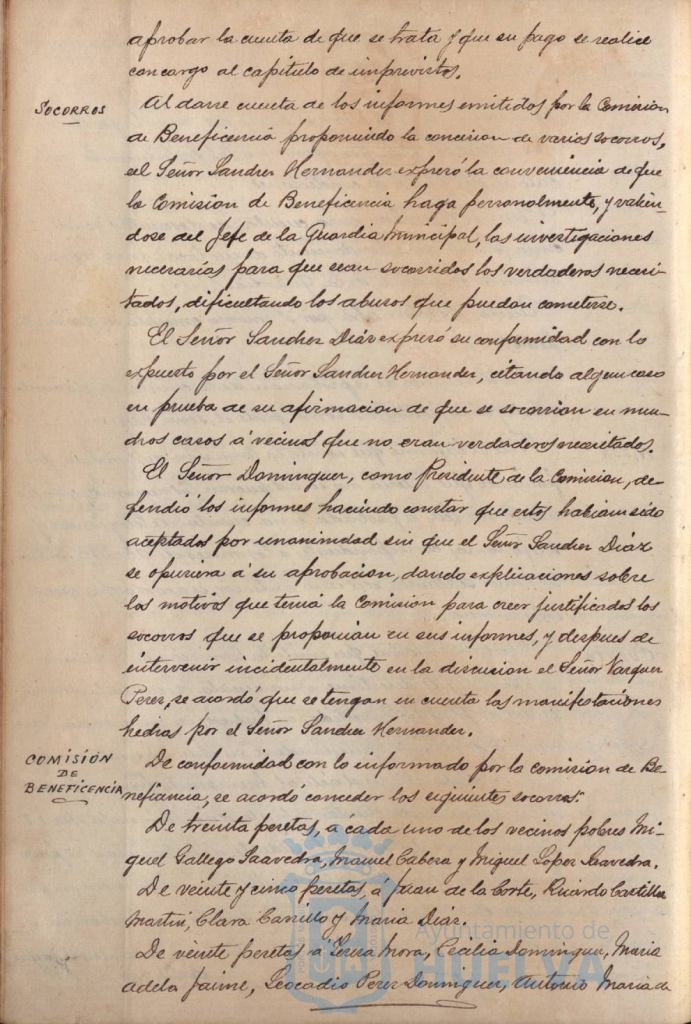 aprobar la cuenta de que se trata y que su pago se realice
con cargo al capitulo de imprevistos.
SOCORROS
Al darse cuenta de los informes emitidos por la Comision
de Beneficencia proponiendo la concision de varios socorros,
el Señor Sanchez Hernandez expresó la conveniencia de que
la Comision de Beneficencia haga personalmente, y valien-
dose del Jefe de la Guardia Municipal, las investigaciones
necesarias para que sean socorridos los verdaderos necesi-
tados, dificultando los abusos que puedan cometerse.
El Señor Sanchez Diáz expresó su conformidad con lo
expuesto por el Señor Sanchez Hernandez, citando algun caso
en prueba de su afirmacion de que se socorrian en mu-
chos casos á vecinos que no eran verdaderos necesitados.
El Señor Dominguez, como Presidente de la Comision, de-
fendió los informes haciendo constar que estos habian sido
aceptados por unanimidad sin que el Señor Sanchez Diáz
se opusiera á su aprobacion, dando explicaciones sobre
los motivos que tenia la Comision para creer justificados los
socorros que se proponian en sus informes, y despues de
intervenir incidentalmente en la discusion el Señor Vazquez
Perez, se acordó que se tengan en cuenta las manifestaciones
hechas por el Señor Sanchez Hernandez.
COMISIÓN
DE
BENEFICENCIA
De conformidad con lo informado por la comision de Be-
neficiancia, se acordó conceder los siguientes socorros:
De treinta pesetas, á cada uno de los vecinos pobres Mi-
guel Gallego Saavedra, Manuel Cabeza y Miguel López Saavedra.
De veinte y cinco pesetas, á Juan de la Corte, Ricardo Castilla
Martin, Clara Carrillo y Maria Diáz.
De veinte pesetas á Mora, Cecilia Dominguez, Maria
adela Jaime, Leocadio Perez Dominguez, Antonio Maria de
Ayuntamiento de
HUELVA